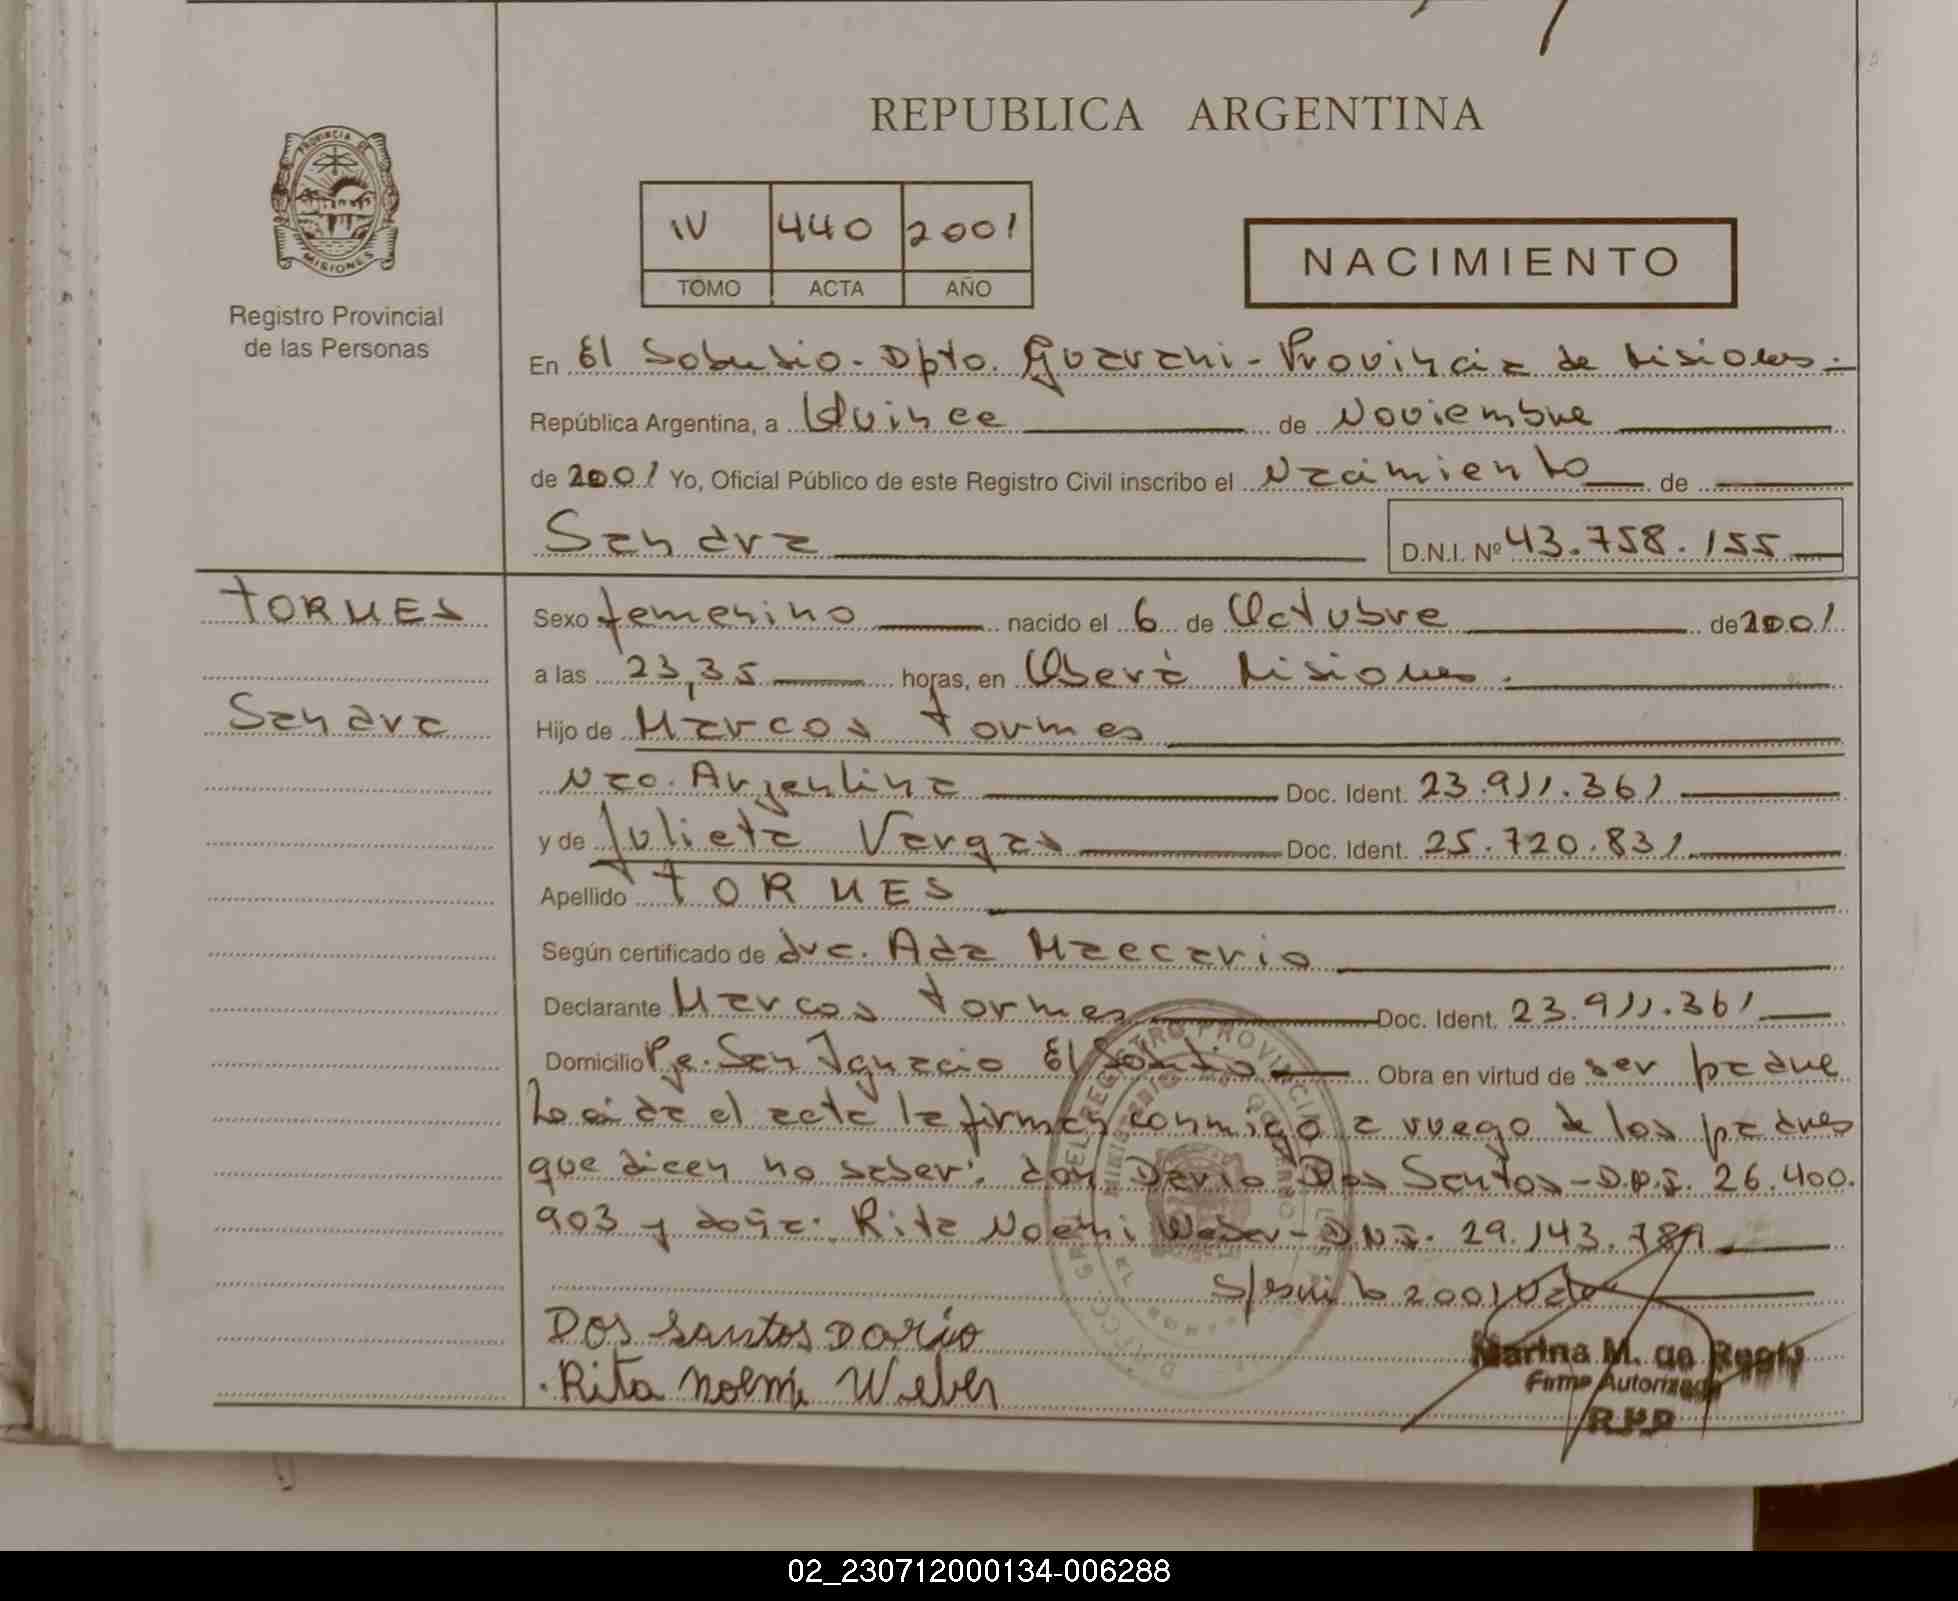 REPUBLICA ARGENTINA
PROVINCIA DE
MISIONES
Registro Provincial
de las Personas
IV 440 2001
TOMO ACTA AÑO
NACIMIENTO
En El Soberbio - Dpto. Guarani - Provincia de Misiones.-
República Argentina, a Quince de Noviembre
de 2001 Yo, Oficial Público de este Registro Civil inscribo el Nacimiento de
Sandra D.N.I. Nº 43.758.155
TORMES
Sandra
Sexo femenino nacido el 6 de Octubre de 2001
a las 23,35 horas, en Oberá Misiones.
Hijo de Marcos Tormes
Nac. Argentina Doc. Ident. 23.911.361
y de Julieta Vargas Doc. Ident. 25.720.831
Apellido TORMES
Según certificado de dra. Ada Maccario
Declarante Marcos Tormes Doc. Ident. 23.911.361
Domicilio Pje. San Ignacio El Sobrbio Obra en virtud de ser padre
Leida el acta la firman conmigo a ruego de los padres
que dicen no saber: don Dario Dos Santos - D.N.I. 26.400.
903 y doña: Rita Noemi Weber - D.N.I. 29.143.789
s/escrito 2001 Vale
Dos Santos Dario
Rita Noemi Weber
Marina M. de
Firma Autorizada
R.P.P
02_230712000134-006288